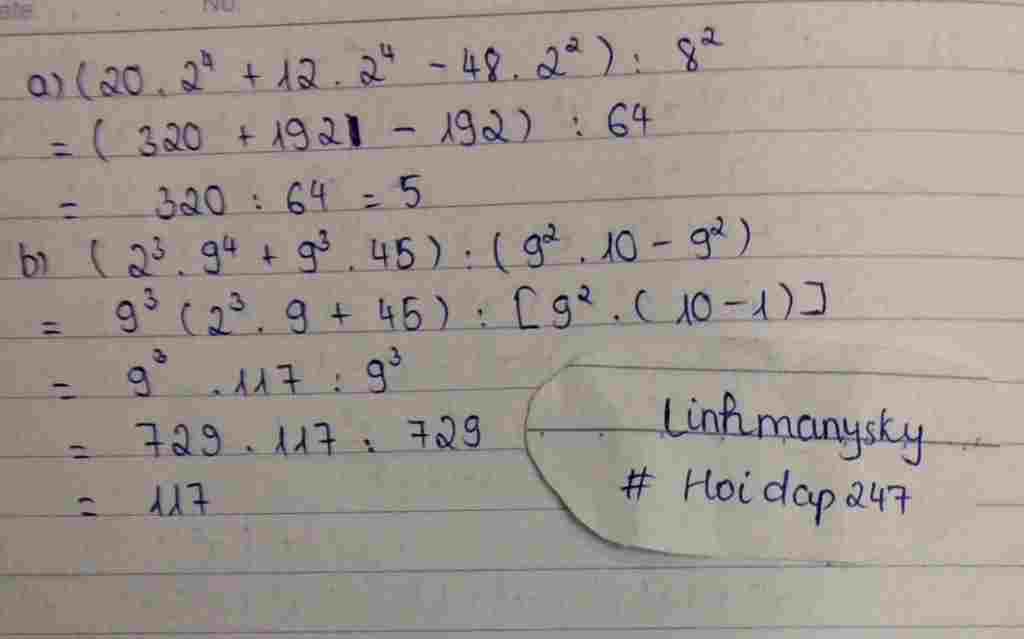 ate No.
a) (20 . 2⁴ + 12 . 2⁴ - 48 . 2²) : 8²
= ( 320 + 192 - 192) : 64
= 320 : 64 = 5
b) ( 2³ . 9⁴ + 9³ . 45) : (9² . 10 - 9²)
= 9³ (2³ . 9 + 45) : [9² . ( 10 - 1)]
= 9³ . 117 : 9³
= 729 . 117 : 729
= 117
Linhmanysky
# Hoidap247